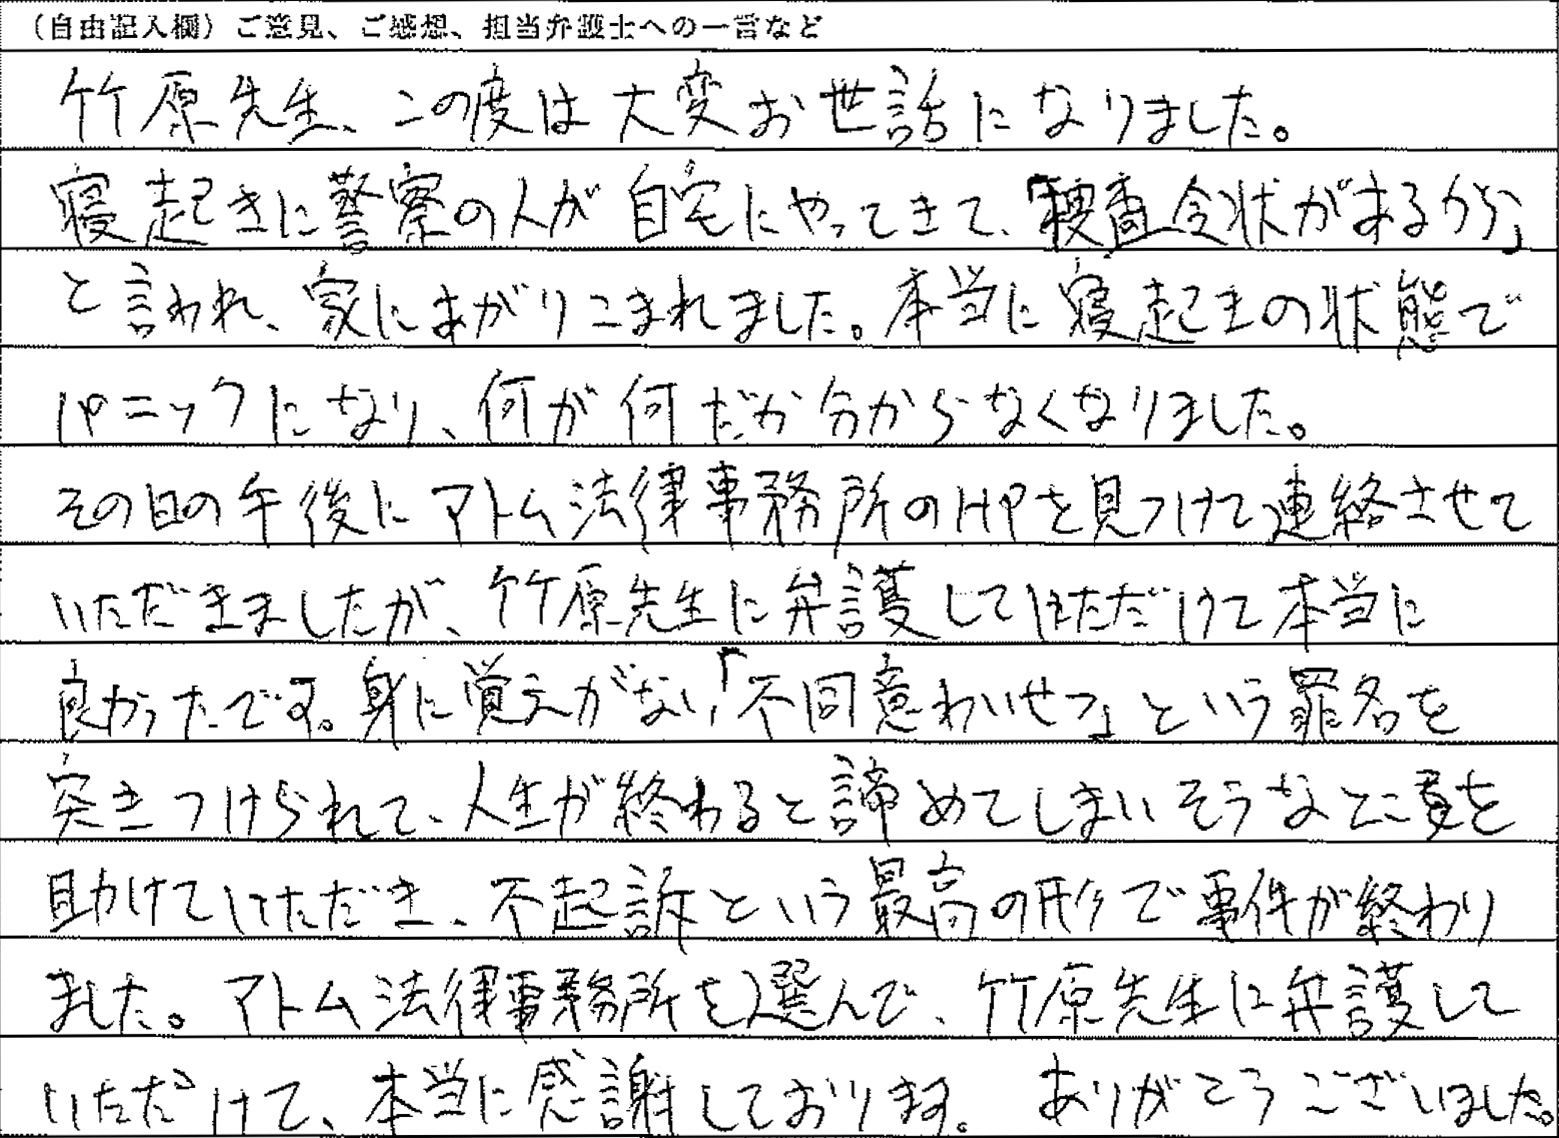 （自由記入欄）ご意見、ご感想、担当弁護士への一言など
竹原先生、この度は大変お世話になりました。
寝起きに警察の人が自宅にやってきて、「捜査令状があるから」
と言われ、家にあがりこまれました。本当に寝起きの状態で
パニックになり、何が何だか分からなくなりました。
その日の午後にアトム法律事務所のHPを見つけて連絡させて
いただきましたが、竹原先生に弁護していただけて本当に
良かったです。身に覚えがない「不同意わいせつ」という罪名を
突きつけられて、人生が終わると諦めてしまいそうなところを
助けていただき、不起訴という最高の形で事件が終わり
ました。アトム法律事務所を選んで、竹原先生に弁護して
いただけて、本当に感謝しております。ありがとうございました。